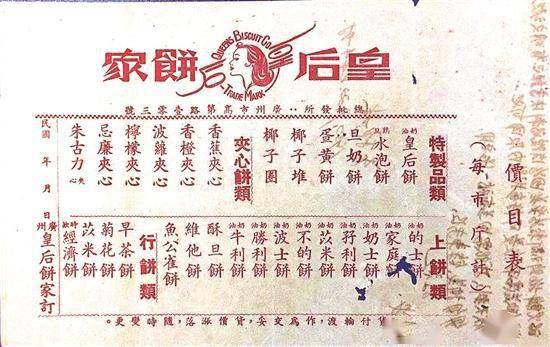 皇后餅家
QUEENS BISCUIT CO
TRADE MARK
總批發所：廣州市高第路壹零三號
價目表
（每市斤計）
特製品類
奶油皇后餅
水泡餅
旦奶餅
蛋黃餅
椰子堆
椰子圈
夾心餅類
香蕉夾心
香橙夾心
波蘿夾心
檸檬夾心
忌廉夾心
朱古力夾心
上餅類
奶油的士餅
奶油家庭餅
奶油奶士餅
奶油孖利餅
奶油苡米餅
奶油不的餅
奶油波士餅
奶油勝利餅
奶油牛利餅
酥旦餅
維他餅
魚公雀餅
行餅類
早茶餅
菊花餅
苡米餅
經濟餅
民國 年 月 日
廣州皇后餅家訂
付輪渡，作為交妥，貨價漲落，隨時變更。